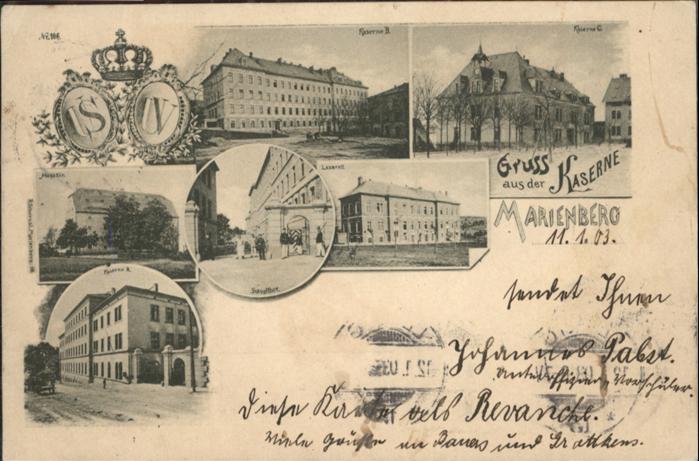 No. 106.
Kaserne B.
Kaserne C.
Magazin
Lazarett
Gruss
aus der KASERNE
MARIENBERG
11.1.03.
Kaserne A.
sendet Ihnen
Johannes Pabst.
Unteroffizier-Vorschüler.
diese Karte als Revanche.
Viele Grüße an
und
12.1.03